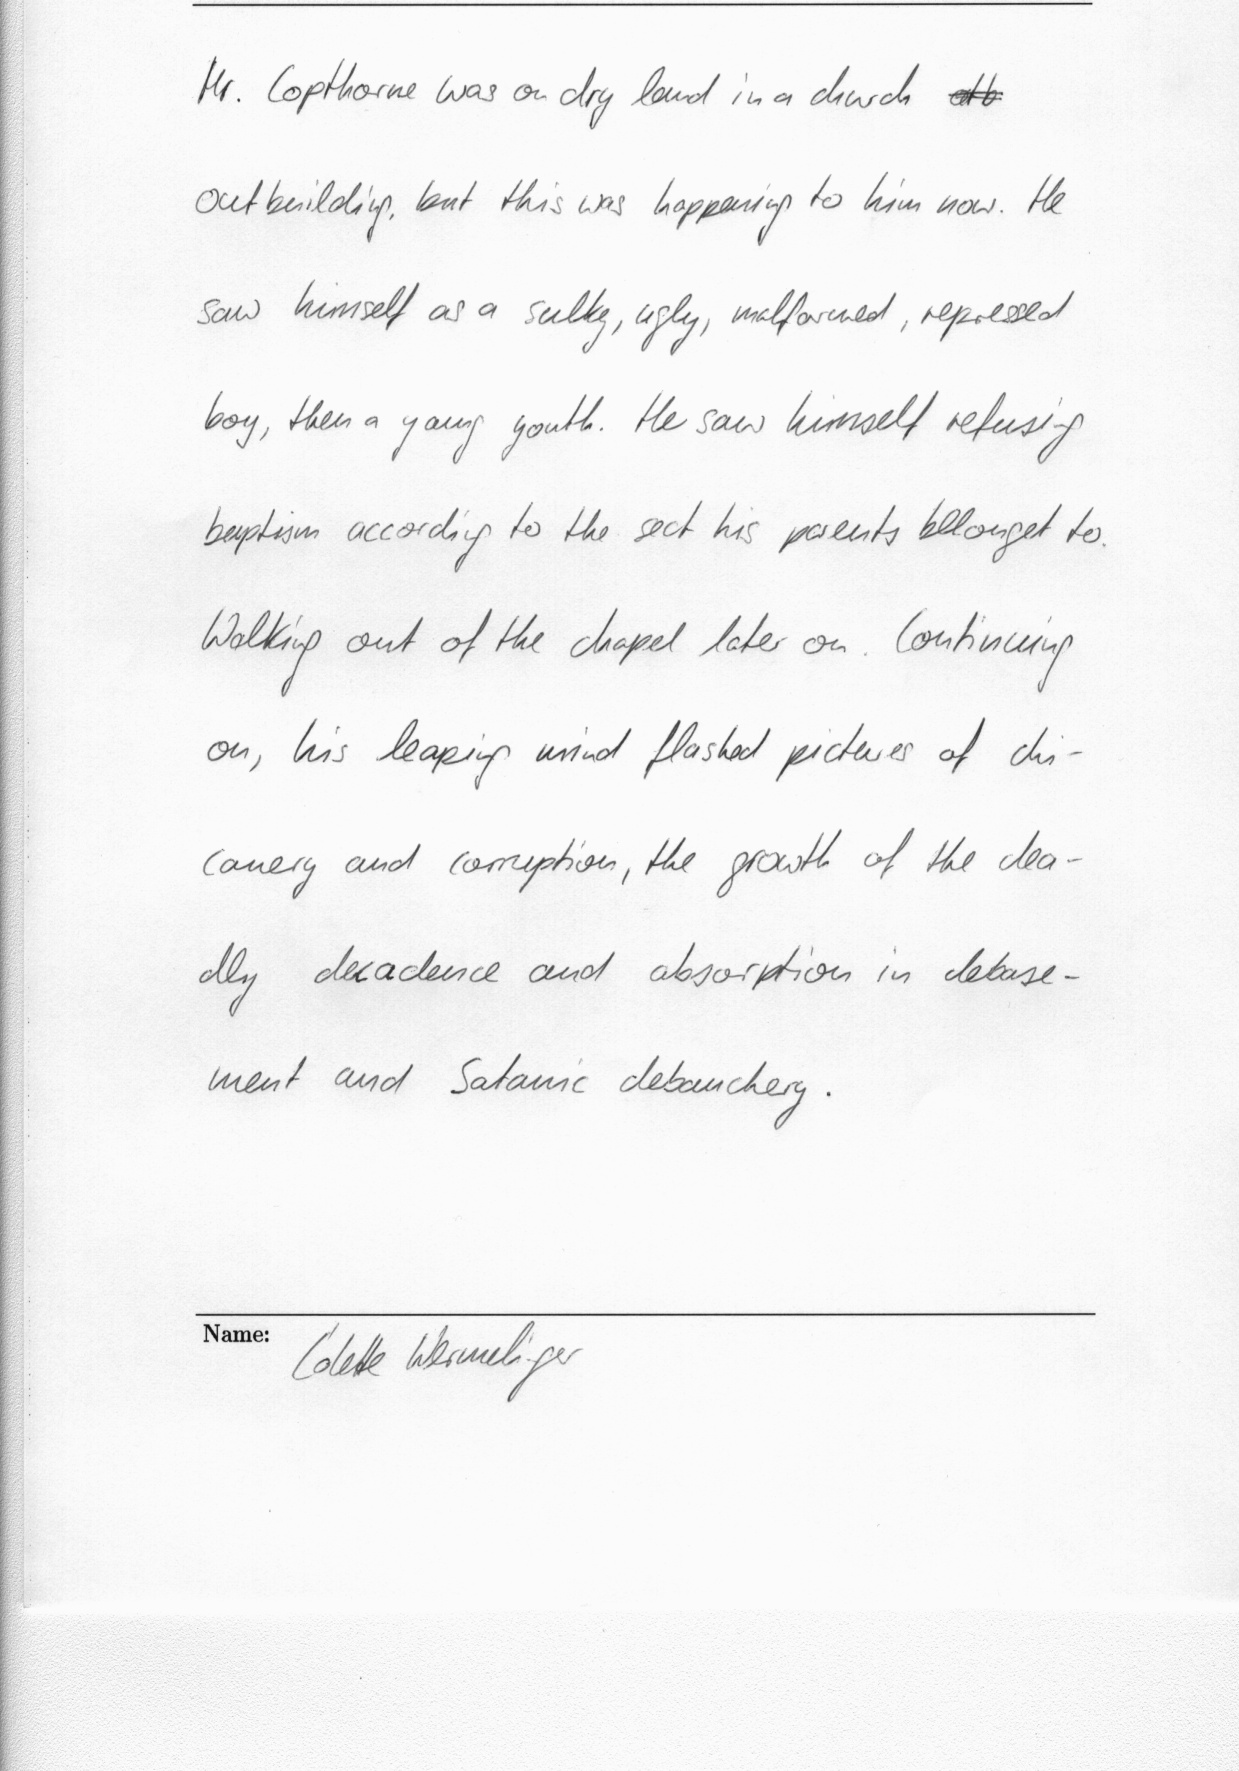 Mr. Copthorne was on dry land in a church
outbuilding, but this was happening to him now. He
saw himself as a sulky, ugly, malformed, repressed
boy, then a young youth. He saw himself refusing
baptism according to the sect his parents bllonget to.
Walking out of the chapel later on. Continuing
on, his leaping mind flashed pictures of chi-
canery and corruption, the growth of the dea-
dly decadence and absorption in debase-
ment and Satanic debauchery.
Name: Colette Wermelinger